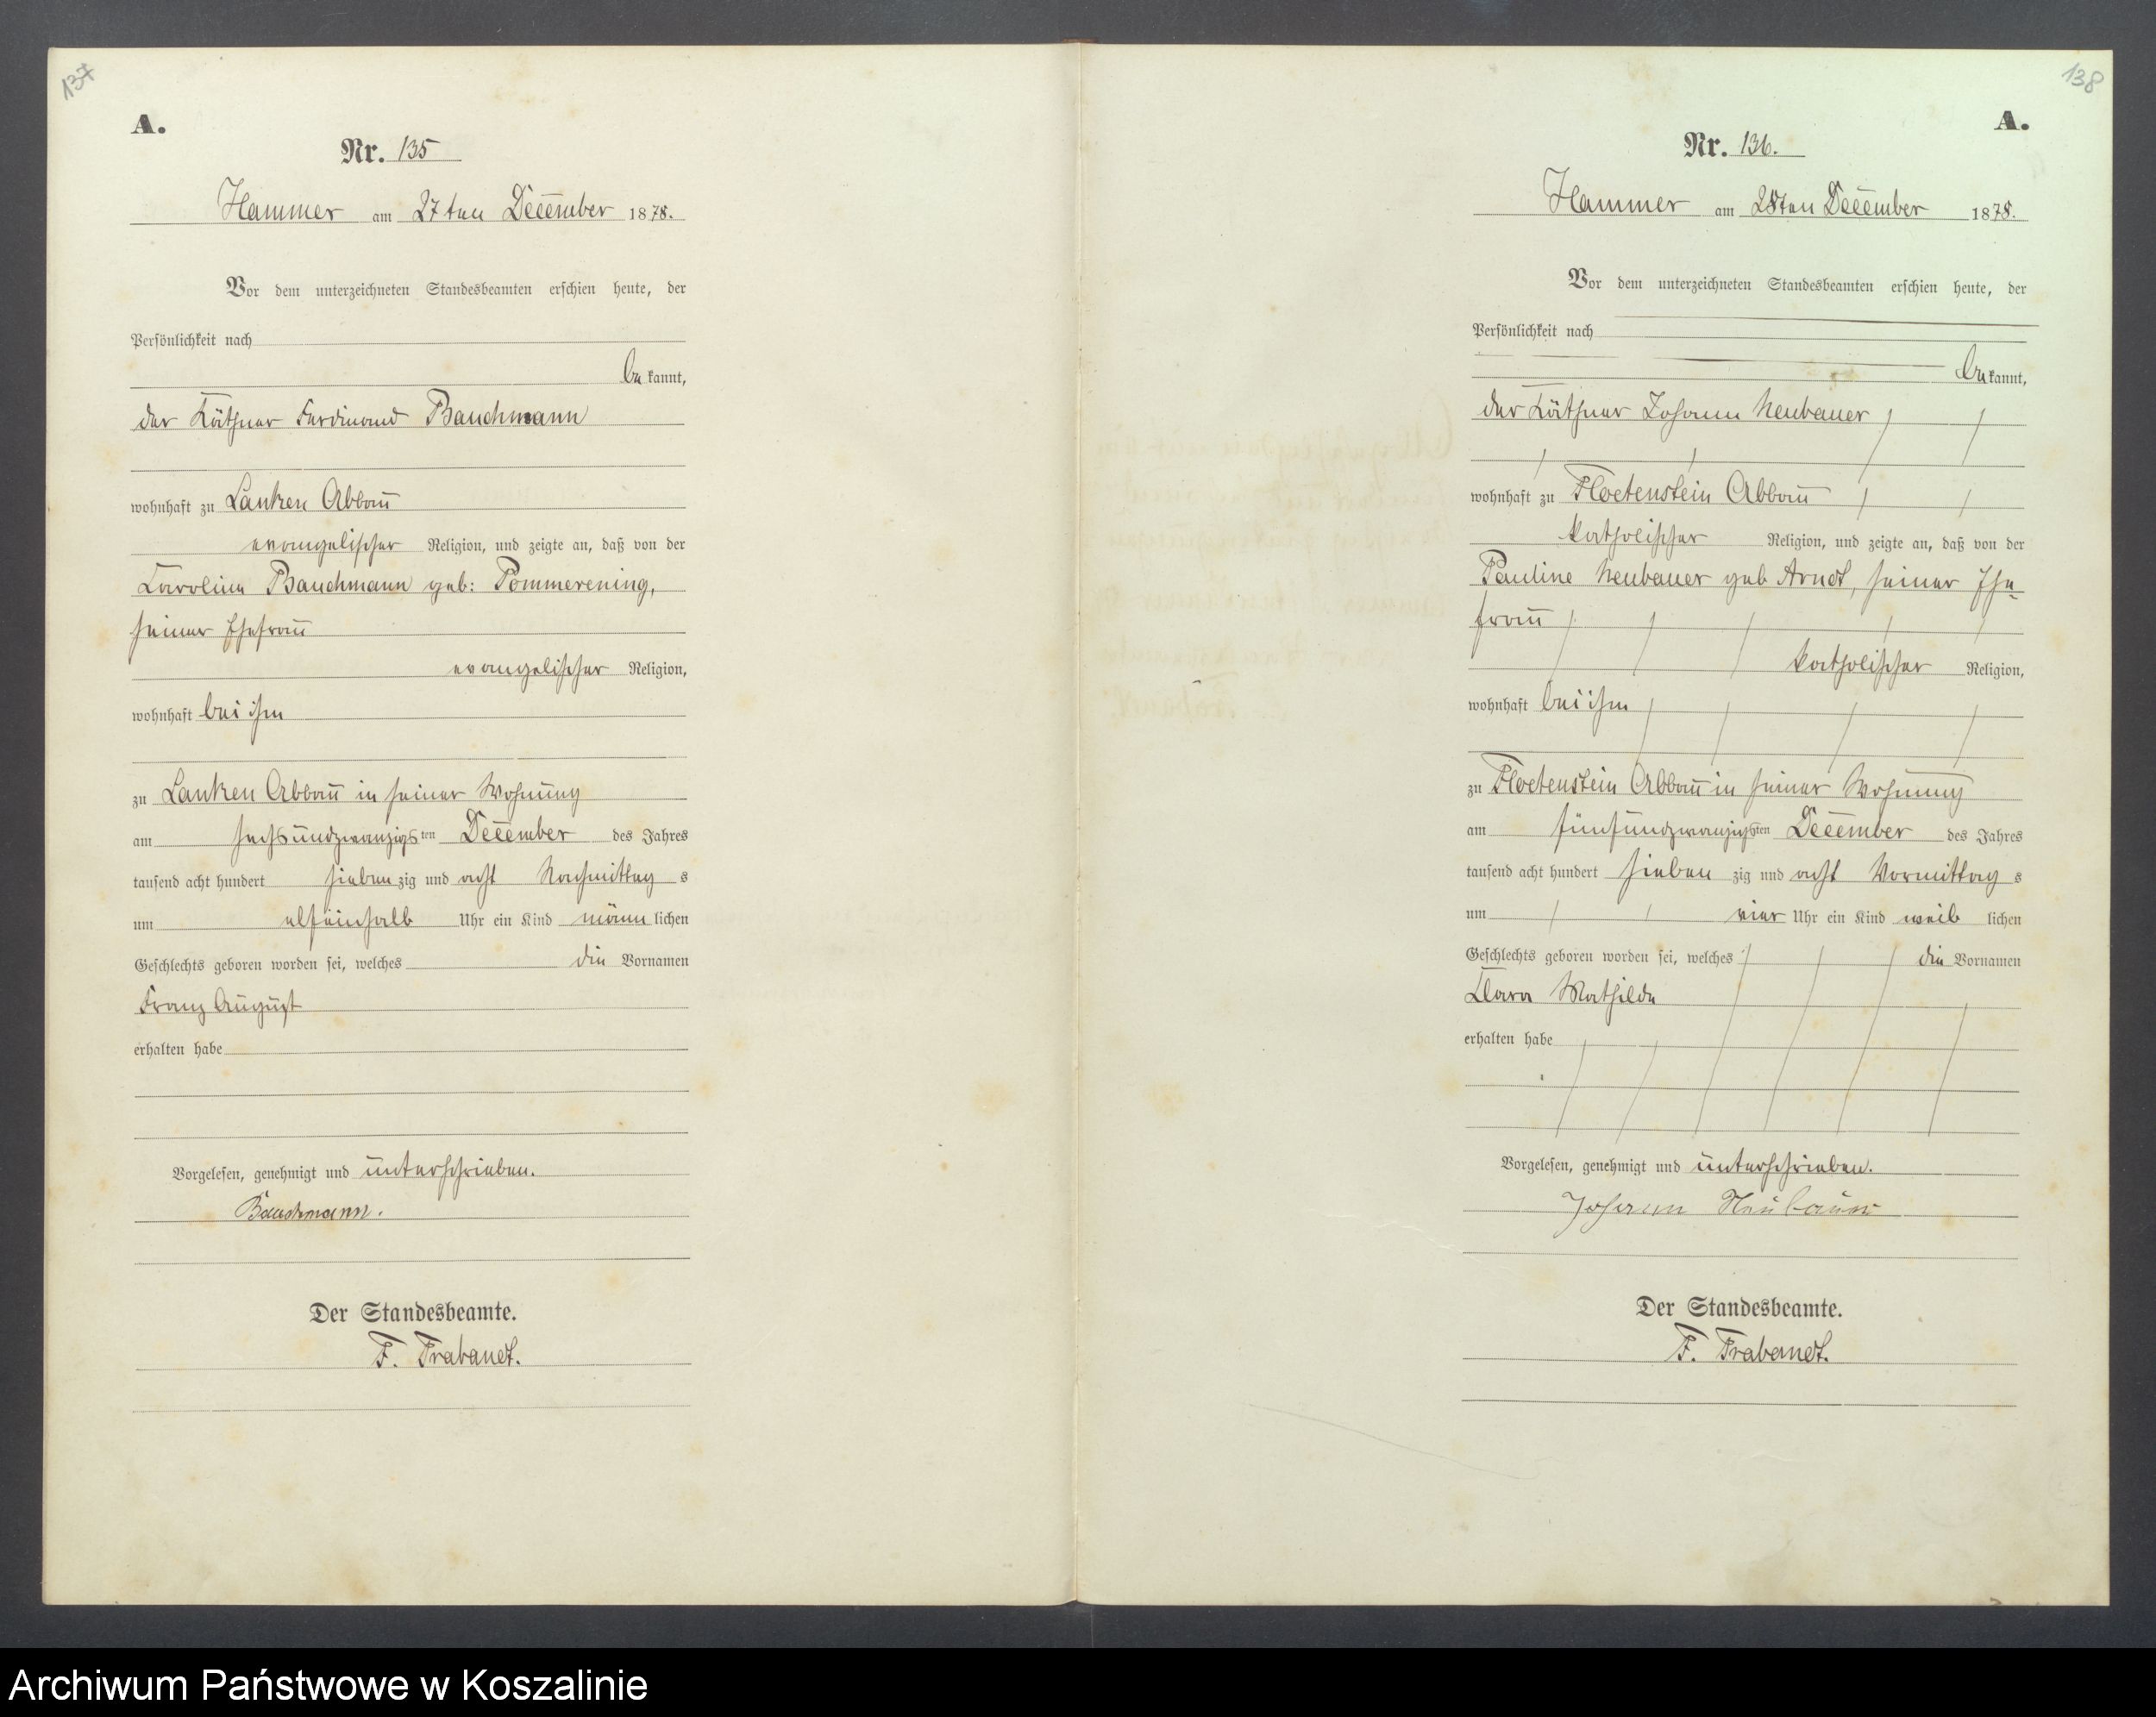 137
A.
Nr. 135
Hammer am 27ten December 1878.
Vor dem unterzeichneten Standesbeamten erschien heute, der
Persönlichkeit nach
bekannt,
der Käthner Ferdinand Bauchmann
wohnhaft zu Lanken Abbau
evangelischer Religion, und zeigte an, daß von der
Caroline Bauchmann geb: Pommerening,
seiner Ehefrau
evangelischer Religion,
wohnhaft bei ihm
zu Lanken Abbau in seiner Wohnung
am sechsundzwanzigsten December des Jahres
tausend acht hundert siebenzig und acht Nachmittags
um elfeinhalb Uhr ein Kind männlichen
Geschlechts geboren worden sei, welches die Vornamen
Franz August
erhalten habe
Vorgelesen, genehmigt und unterschrieben.
Bauchmann.
Der Standesbeamte.
F. Trabandt.
138
A.
Nr. 136.
Hammer am 28ten December 1878.
Vor dem unterzeichneten Standesbeamten erschien heute, der
Persönlichkeit nach
bekannt,
der Käthner Johann Neubauer
wohnhaft zu Floetenstein Abbau
katholischer Religion, und zeigte an, daß von der
Pauline Neubauer geb Arndt, seiner Ehe-
frau
katholischer Religion,
wohnhaft bei ihm
zu Floetenstein Abbau in seiner Wohnung
am fünfundzwanzigsten December des Jahres
tausend acht hundert siebenzig und acht Vormittags
um vier Uhr ein Kind weiblichen
Geschlechts geboren worden sei, welches die Vornamen
Clara Mathilde
erhalten habe
Vorgelesen, genehmigt und unterschrieben.
Johann Neubauer
Der Standesbeamte.
F. Trabandt.
Archiwum Państwowe w Koszalinie